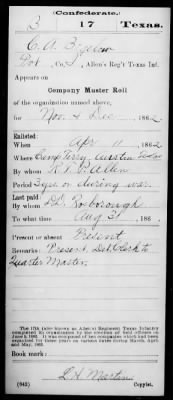 (Confederate.)
B 17 Texas.
C. A. Bigelow
Pvt, Co. , Allen's Reg't Texas Inf.
Appears on
Company Muster Roll
of the organization named above,
for Nov & Dec , 1862.
Enlisted:
When Apr 11 , 1862
Where Camp Terry, Austin Texas
By whom R. T. P. Allen
Period 3 yrs or during war.
Last paid:
By whom D. Rosborough
To what time Aug 31 , 186 .
Present or absent Present
Remarks: Present, Det. Clerk to
Quarter Master.
The 17th (also known as Allen's) Regiment Texas Infantry
completed its organization by the election of field officers on
June 9, 1862. It was composed of ten companies which had been
enrolled for three years on various dates during March, April
and May, 1862.
Book mark:
(642) L H Martin
Copyist.